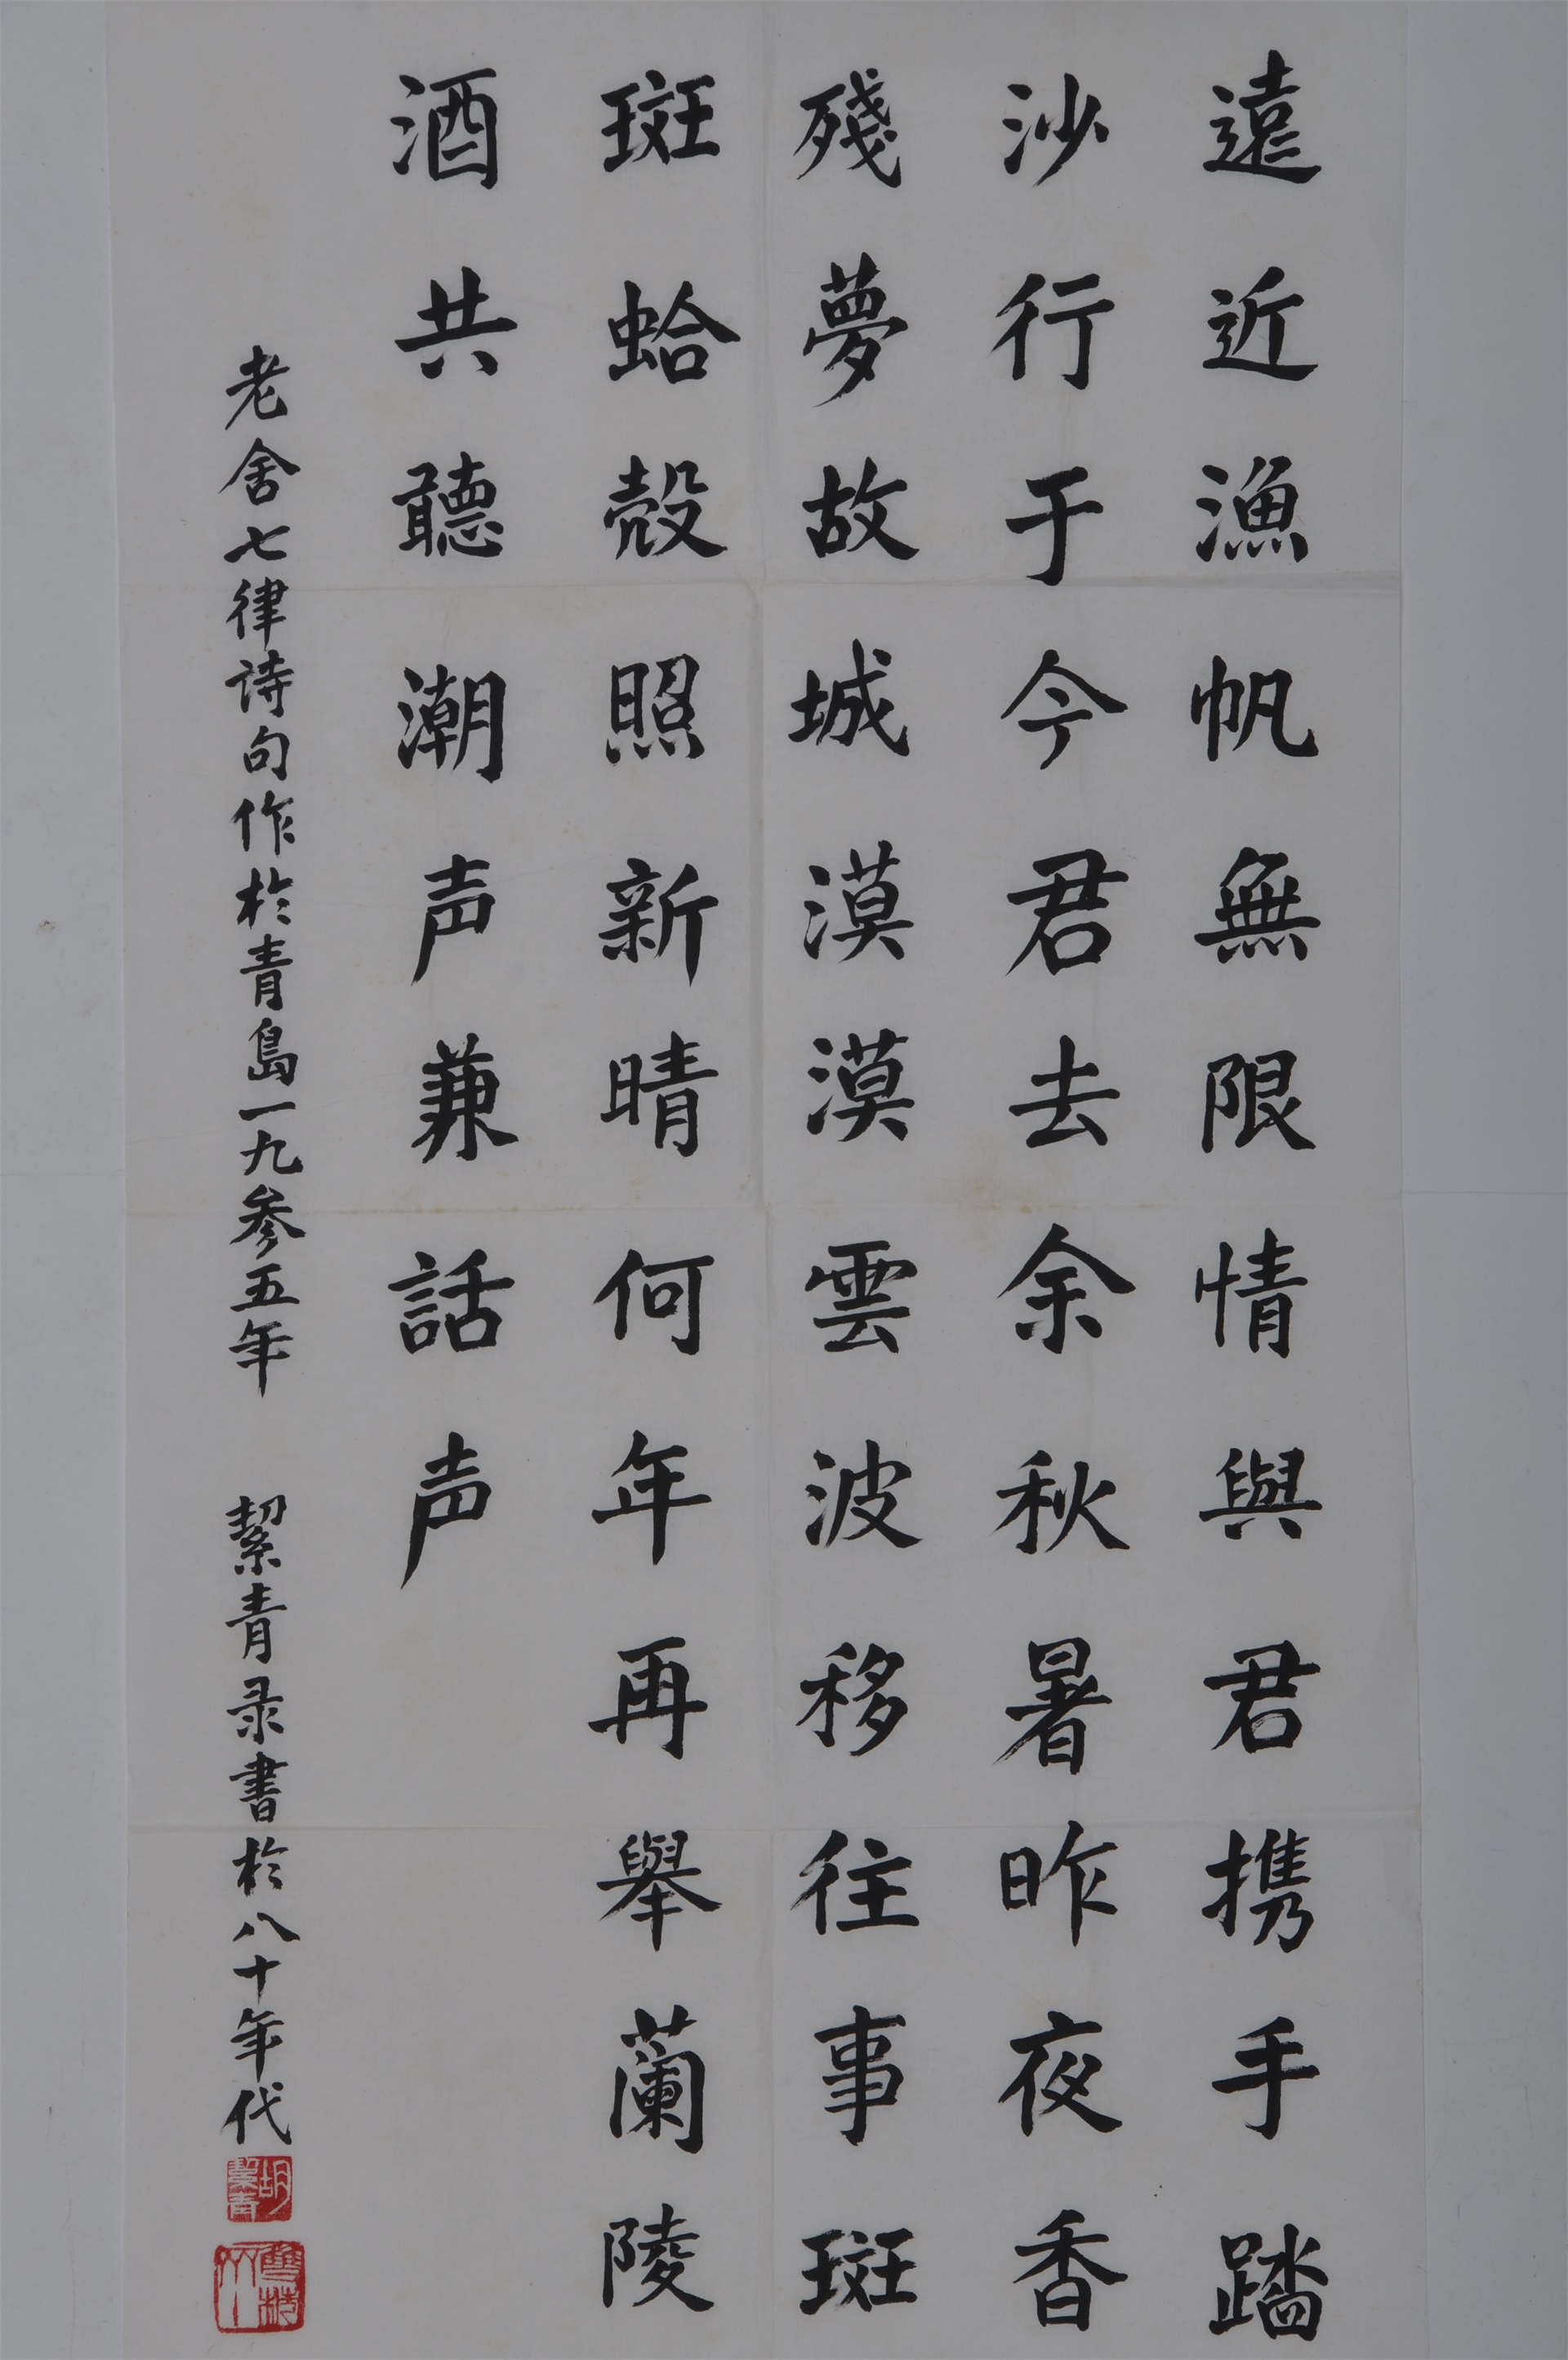 遠近漁帆無限情與君携手踏
沙行于今君去余秋暑昨夜香
殘夢故城漠漠雲波移往事斑
斑蛤殼照新晴何年再舉蘭陵
酒共聽潮声兼話声
老舍七律诗句作於青島一九叁五年 絜青录書於八十年代
胡絜青